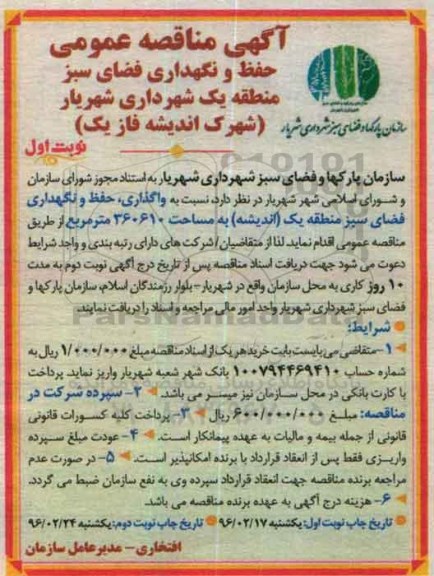 آگهی مناقصه عمومی
حفظ و نگهداری فضای سبز
منطقه یک شهرداری شهریار
(شهرک اندیشه فاز یک)
سازمان پارکها و فضای سبز شهرداری شهریار
نوبت اول
سازمان پارکها و فضای سبز شهرداری شهریار به استناد مجوز شورای سازمان
و شورای اسلامی شهر شهریار در نظر دارد، نسبت به واگذاری، حفظ و نگهداری
فضای سبز منطقه یک (اندیشه) به مساحت ۳۶۰۶۱۰ مترمربع از طریق
مناقصه عمومی اقدام نماید. لذا از متقاضیان / شرکت های دارای رتبه بندی و واجد شرایط
دعوت می شود جهت دریافت اسناد مناقصه پس از تاریخ درج آگهی نوبت دوم به مدت
۱۰ روز کاری به محل سازمان واقع در شهریار - بلوار رزمندگان اسلام، سازمان پارکها و
فضای سبز شهرداری شهریار واحد امور مالی مراجعه و اسناد را دریافت نمایند.
شرایط:
۱- متقاضی می بایست بابت خرید هر یک از اسناد مناقصه مبلغ ۱/۰۰۰/۰۰۰ ریال به
شماره حساب ۱۰۰۷۹۴۴۶۹۴۱۰ بانک شهر شعبه شهریار واریز نماید. پرداخت
با کارت بانکی در محل سازمان نیز میسر می باشد. ۲- سپرده شرکت در
مناقصه: مبلغ ۶۰۰/۰۰۰/۰۰۰ ریال ۳- پرداخت کلیه کسورات قانونی
قانونی از جمله بیمه و مالیات به عهده پیمانکار است. ۴- عودت مبلغ سپرده
واریزی فقط پس از انعقاد قرارداد با برنده امکانپذیر است. ۵- در صورت عدم
مراجعه برنده مناقصه جهت انعقاد قرارداد سپرده وی به نفع سازمان ضبط می گردد.
۶- هزینه درج آگهی به عهده برنده مناقصه می باشد.
تاریخ چاپ نوبت اول: یکشنبه ۹۶/۰۲/۱۷ تاریخ چاپ نوبت دوم: یکشنبه ۹۶/۰۲/۲۴
افتخاری - مدیرعامل سازمان